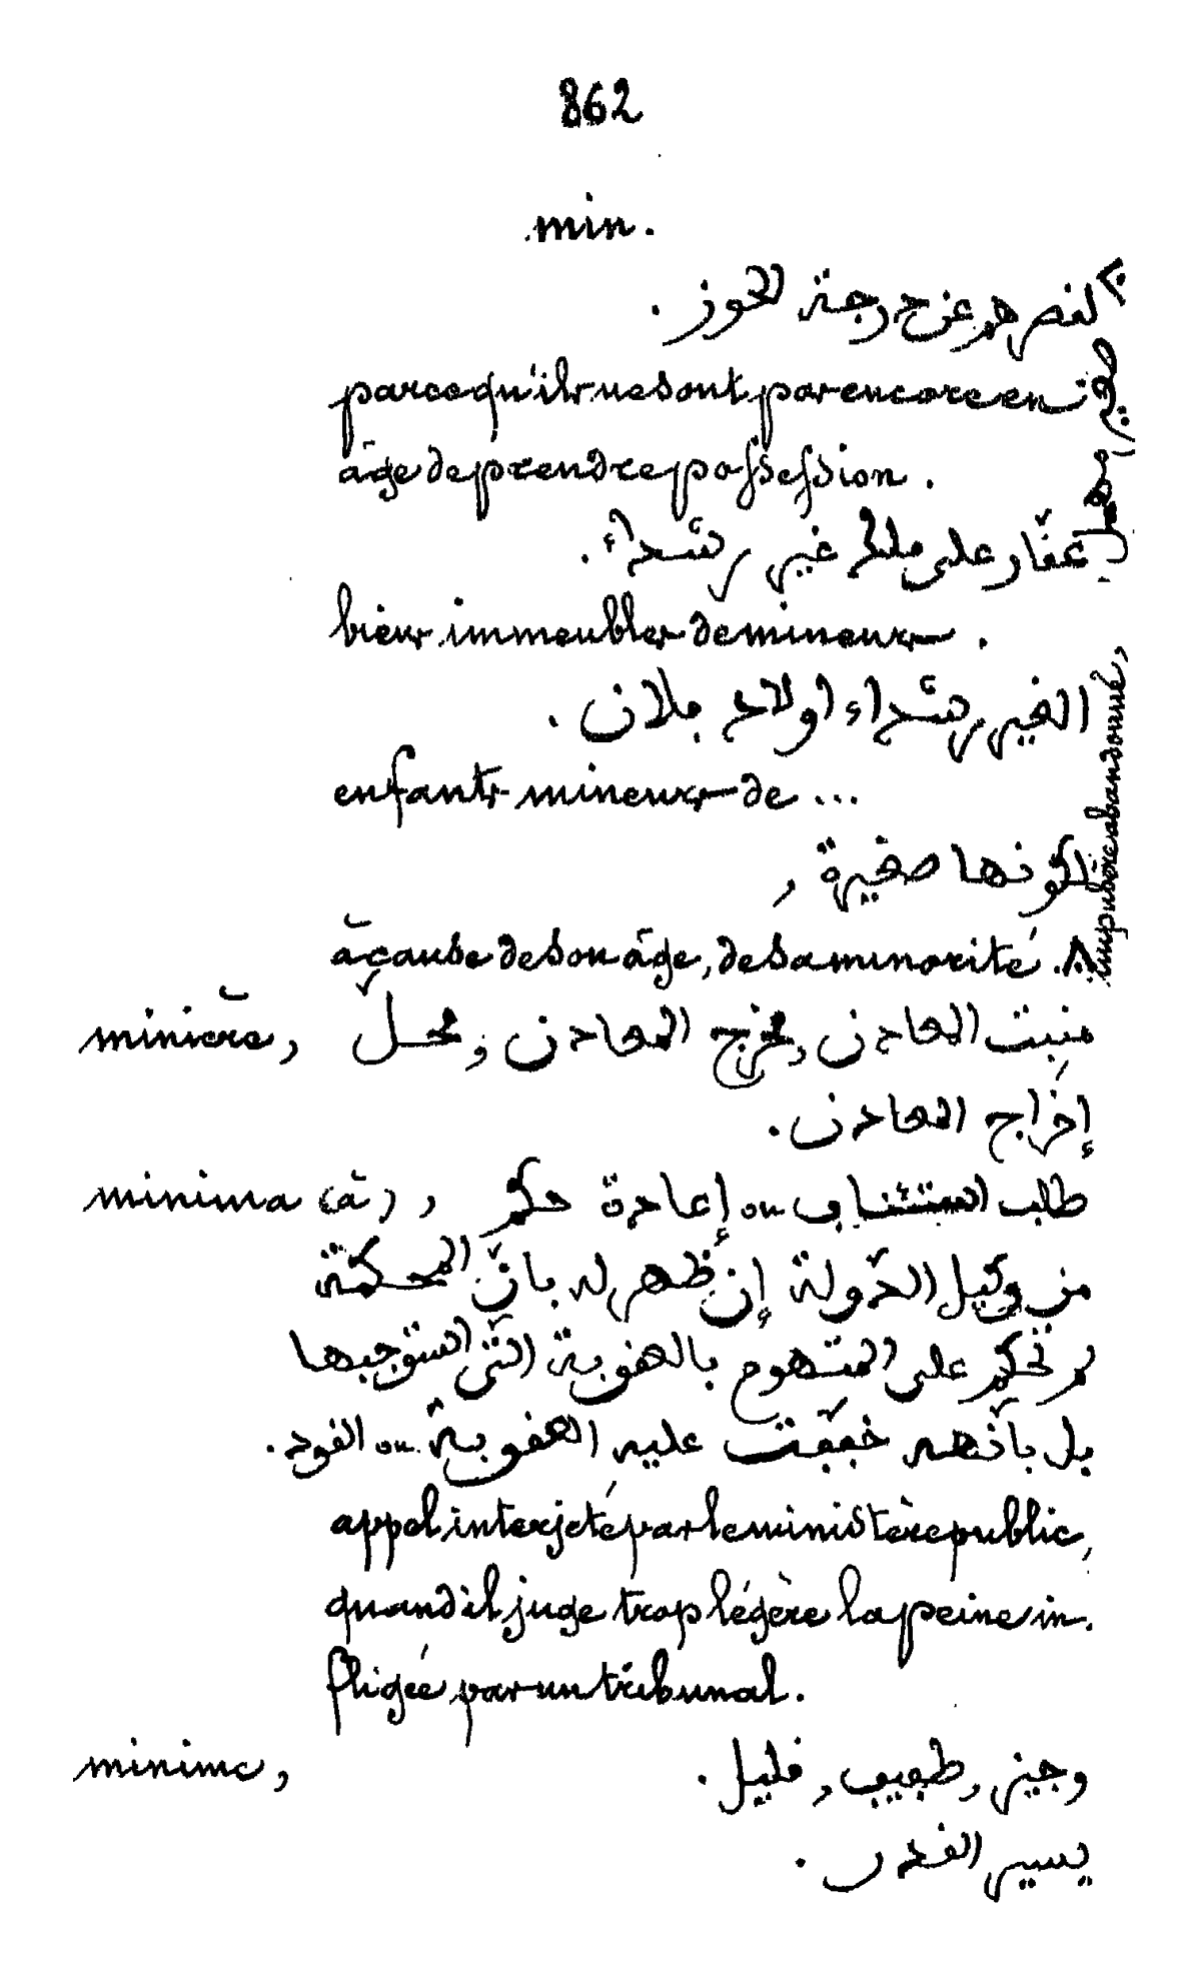 862
min.
لقصرهم عن درجة الحوز.
parce qu'ils ne sont pas encore en
âge de prendre possession.
عقّار على ملك غير رشداء.
biens immeubles de mineurs.
الغير رشداء اولاد فلان.
enfants mineurs de ...
لكونها صغيرة,
à cause de son âge, de sa minorité.
صغير مهمل
impubère abandonné,
minière, منبت المعادن, مخرج المعادن, محلّ
إخراج المعادن.
minima (à), طلب استئناف ou إعادة حكم
من وكيل الدّولة إن ظهر له بانّ المحكمة
لم تحكم على المتهوم بالعقوبة الّتي استوجبها
بل بانّها خفّفت عليه العقوبة ou القود.
appel interjeté par le ministère public,
quand il juge trop légère la peine in-
fligée par un tribunal.
minime, وجيز, طفيف, قليل.
يسير القدر.